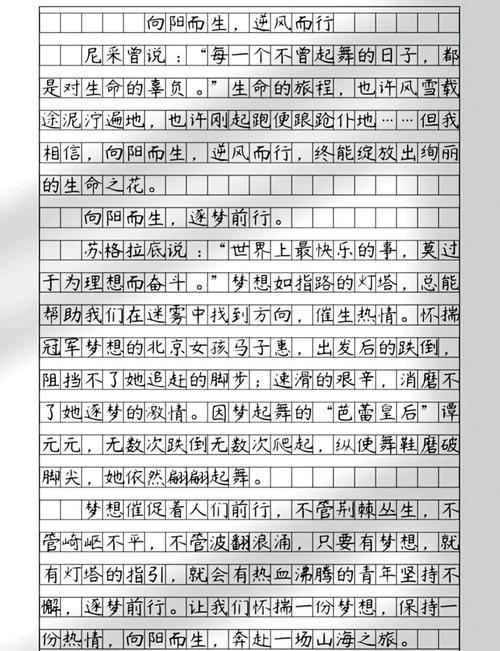 向阳而生，逆风而行
尼采曾说：“每一个不曾起舞的日子，都
是对生命的辜负。”生命的旅程，也许风雪载
途泥泞遍地，也许刚起跑便踉跄仆地……但我
相信，向阳而生，逆风而行，终能绽放出绚丽
的生命之花。
向阳而生，逐梦前行。
苏格拉底说：“世界上最快乐的事，莫过
于为理想而奋斗。”梦想如指路的灯塔，总能
帮助我们在迷雾中找到方向，催生热情。怀揣
冠军梦想的北京女孩马子惠，出发后的跌倒，
阻挡不了她追赶的脚步；速滑的艰辛，消磨不
了她逐梦的激情。因梦起舞的“芭蕾皇后”谭
元元，无数次跌倒无数次爬起，纵使舞鞋磨破
脚尖，她依然翩翩起舞。
梦想催促着人们前行，不管荆棘丛生，不
管崎岖不平，不管波翻浪涌，只要有梦想，就
有灯塔的指引，就会有热血沸腾的青年坚持不
懈，逐梦前行。让我们怀揣一份梦想，保持一
份热情，向阳而生，奔赴一场山海之旅。